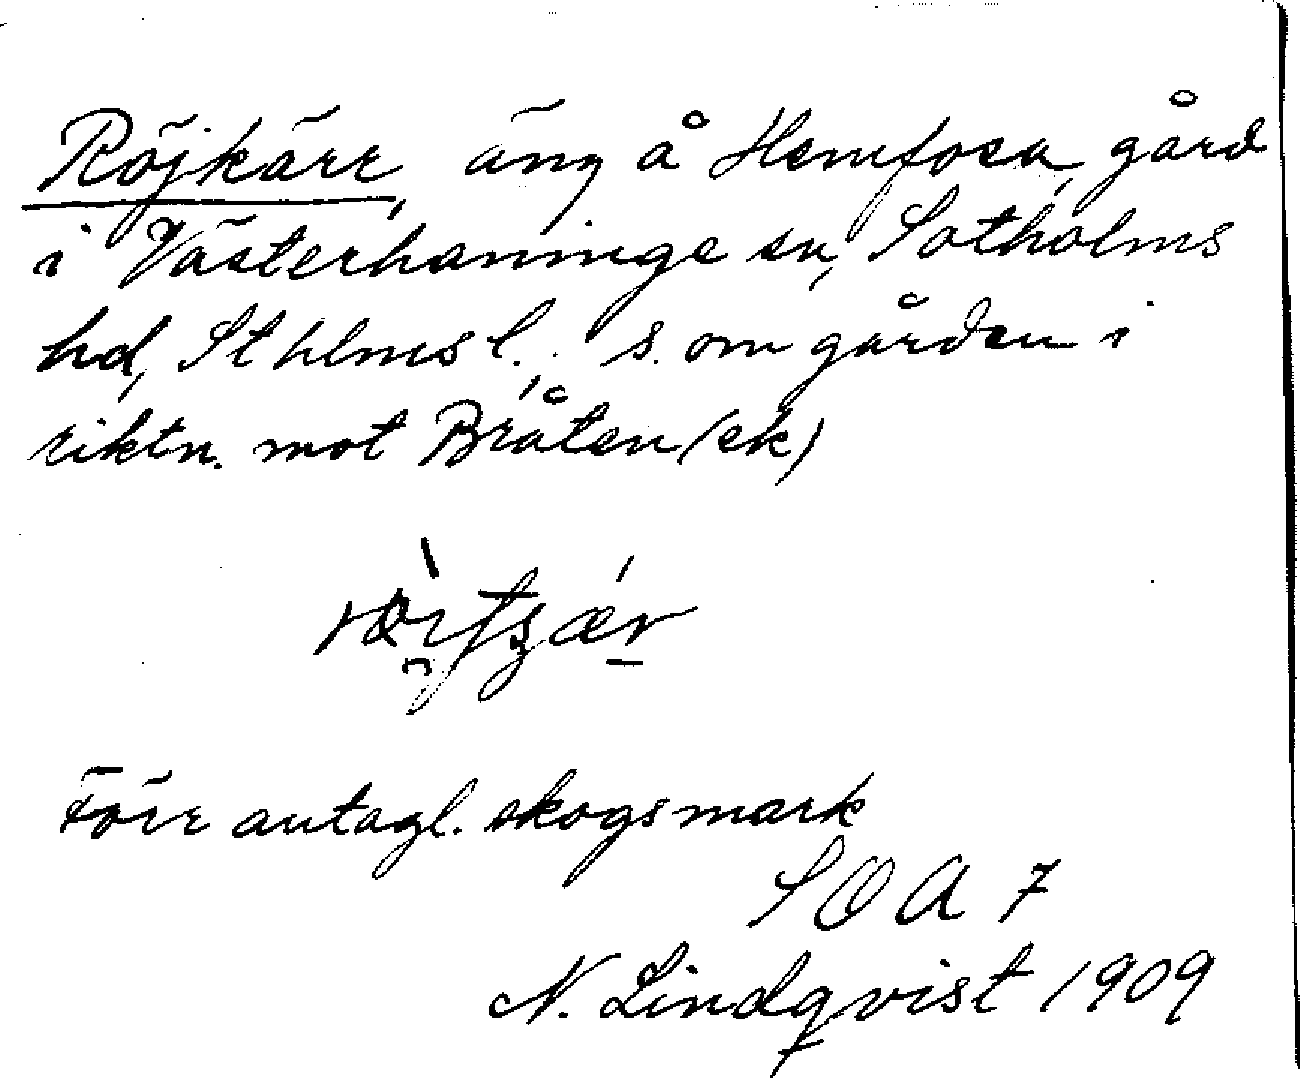 Röjkärr, äng å Hemfosa, gård
i Västerhaninge sn, Sotholms
hd, Sthlms l., s. om gården i
riktn. mot Bråten (ek)
Förr antagl. skogsmark
SOA 7
N. Lindqvist 1909